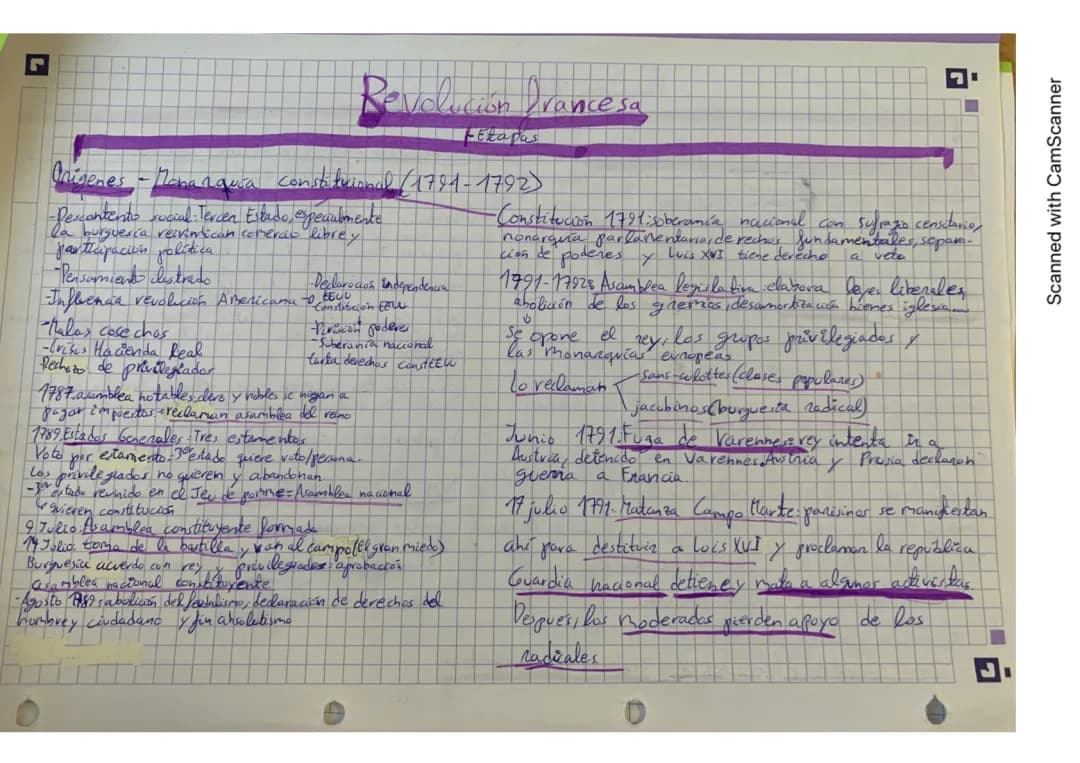 Revolución Francesa
Etapas
Orígenes - Monarquía constitucional (1791-1792)
-Descontento social: Tercer Estado, especialmente
la burguesía reivindican comercio libre y
participación política
-Pensamiento ilustrado
-Influencia revolución Americana
-Declaración independencia
EEUU
-Constitución EEUU
-División poderes
-Soberanía nacional
carta derechos constEEUU
-Malas cosechas
-Crisis Hacienda Real
Rechazo de privilegiados
1787: asamblea notables, clero y nobles se niegan a
pagar impuestos, reclaman asamblea del reino
1789, Estados Generales: Tres estamentos
Voto por estamento-3er estado quiere voto/persona.
Los privilegiados no quieren y abandonan
-3er estado reunido en el Jeu de pomme = Asamblea nacional
quieren constitución
9 Julio: Asamblea constituyente formada
14 Julio: toma de la bastilla y van al campo (El gran miedo)
Burguesía acuerdo con rey y privilegiados: aprobación
asamblea nacional constituyente
-Agosto 1789: abolición del feudalismo, declaración de derechos del
hombre y ciudadano y fin absolutismo
Constitución 1791: soberanía nacional con sufragio censitario,
monarquía parlamentaria, derechos fundamentales, separa-
ción de poderes y Luis XVI tiene derecho a veto
1791-1792: Asamblea legislativa: elabora leyes liberales,
abolición de los gremios, desamortización bienes iglesia...
Se opone el rey, los grupos privilegiados y
las monarquías europeas
Lo reclaman
sans-culottes (clases populares)
jacobinos (burguesía radical)
Junio 1791: Fuga de Varennes: rey intenta ir a
Austria, detenido en Varennes. Austria y Prusia declaran
guerra a Francia
17 julio 1791: Matanza Campo Marte: parisinos se manifiestan
ahí para destituir a Luis XVI y proclaman la república
Guardia nacional detiene y mata a algunos activistas
Después, los moderados pierden apoyo de los
radicales
Scanned with CamScanner